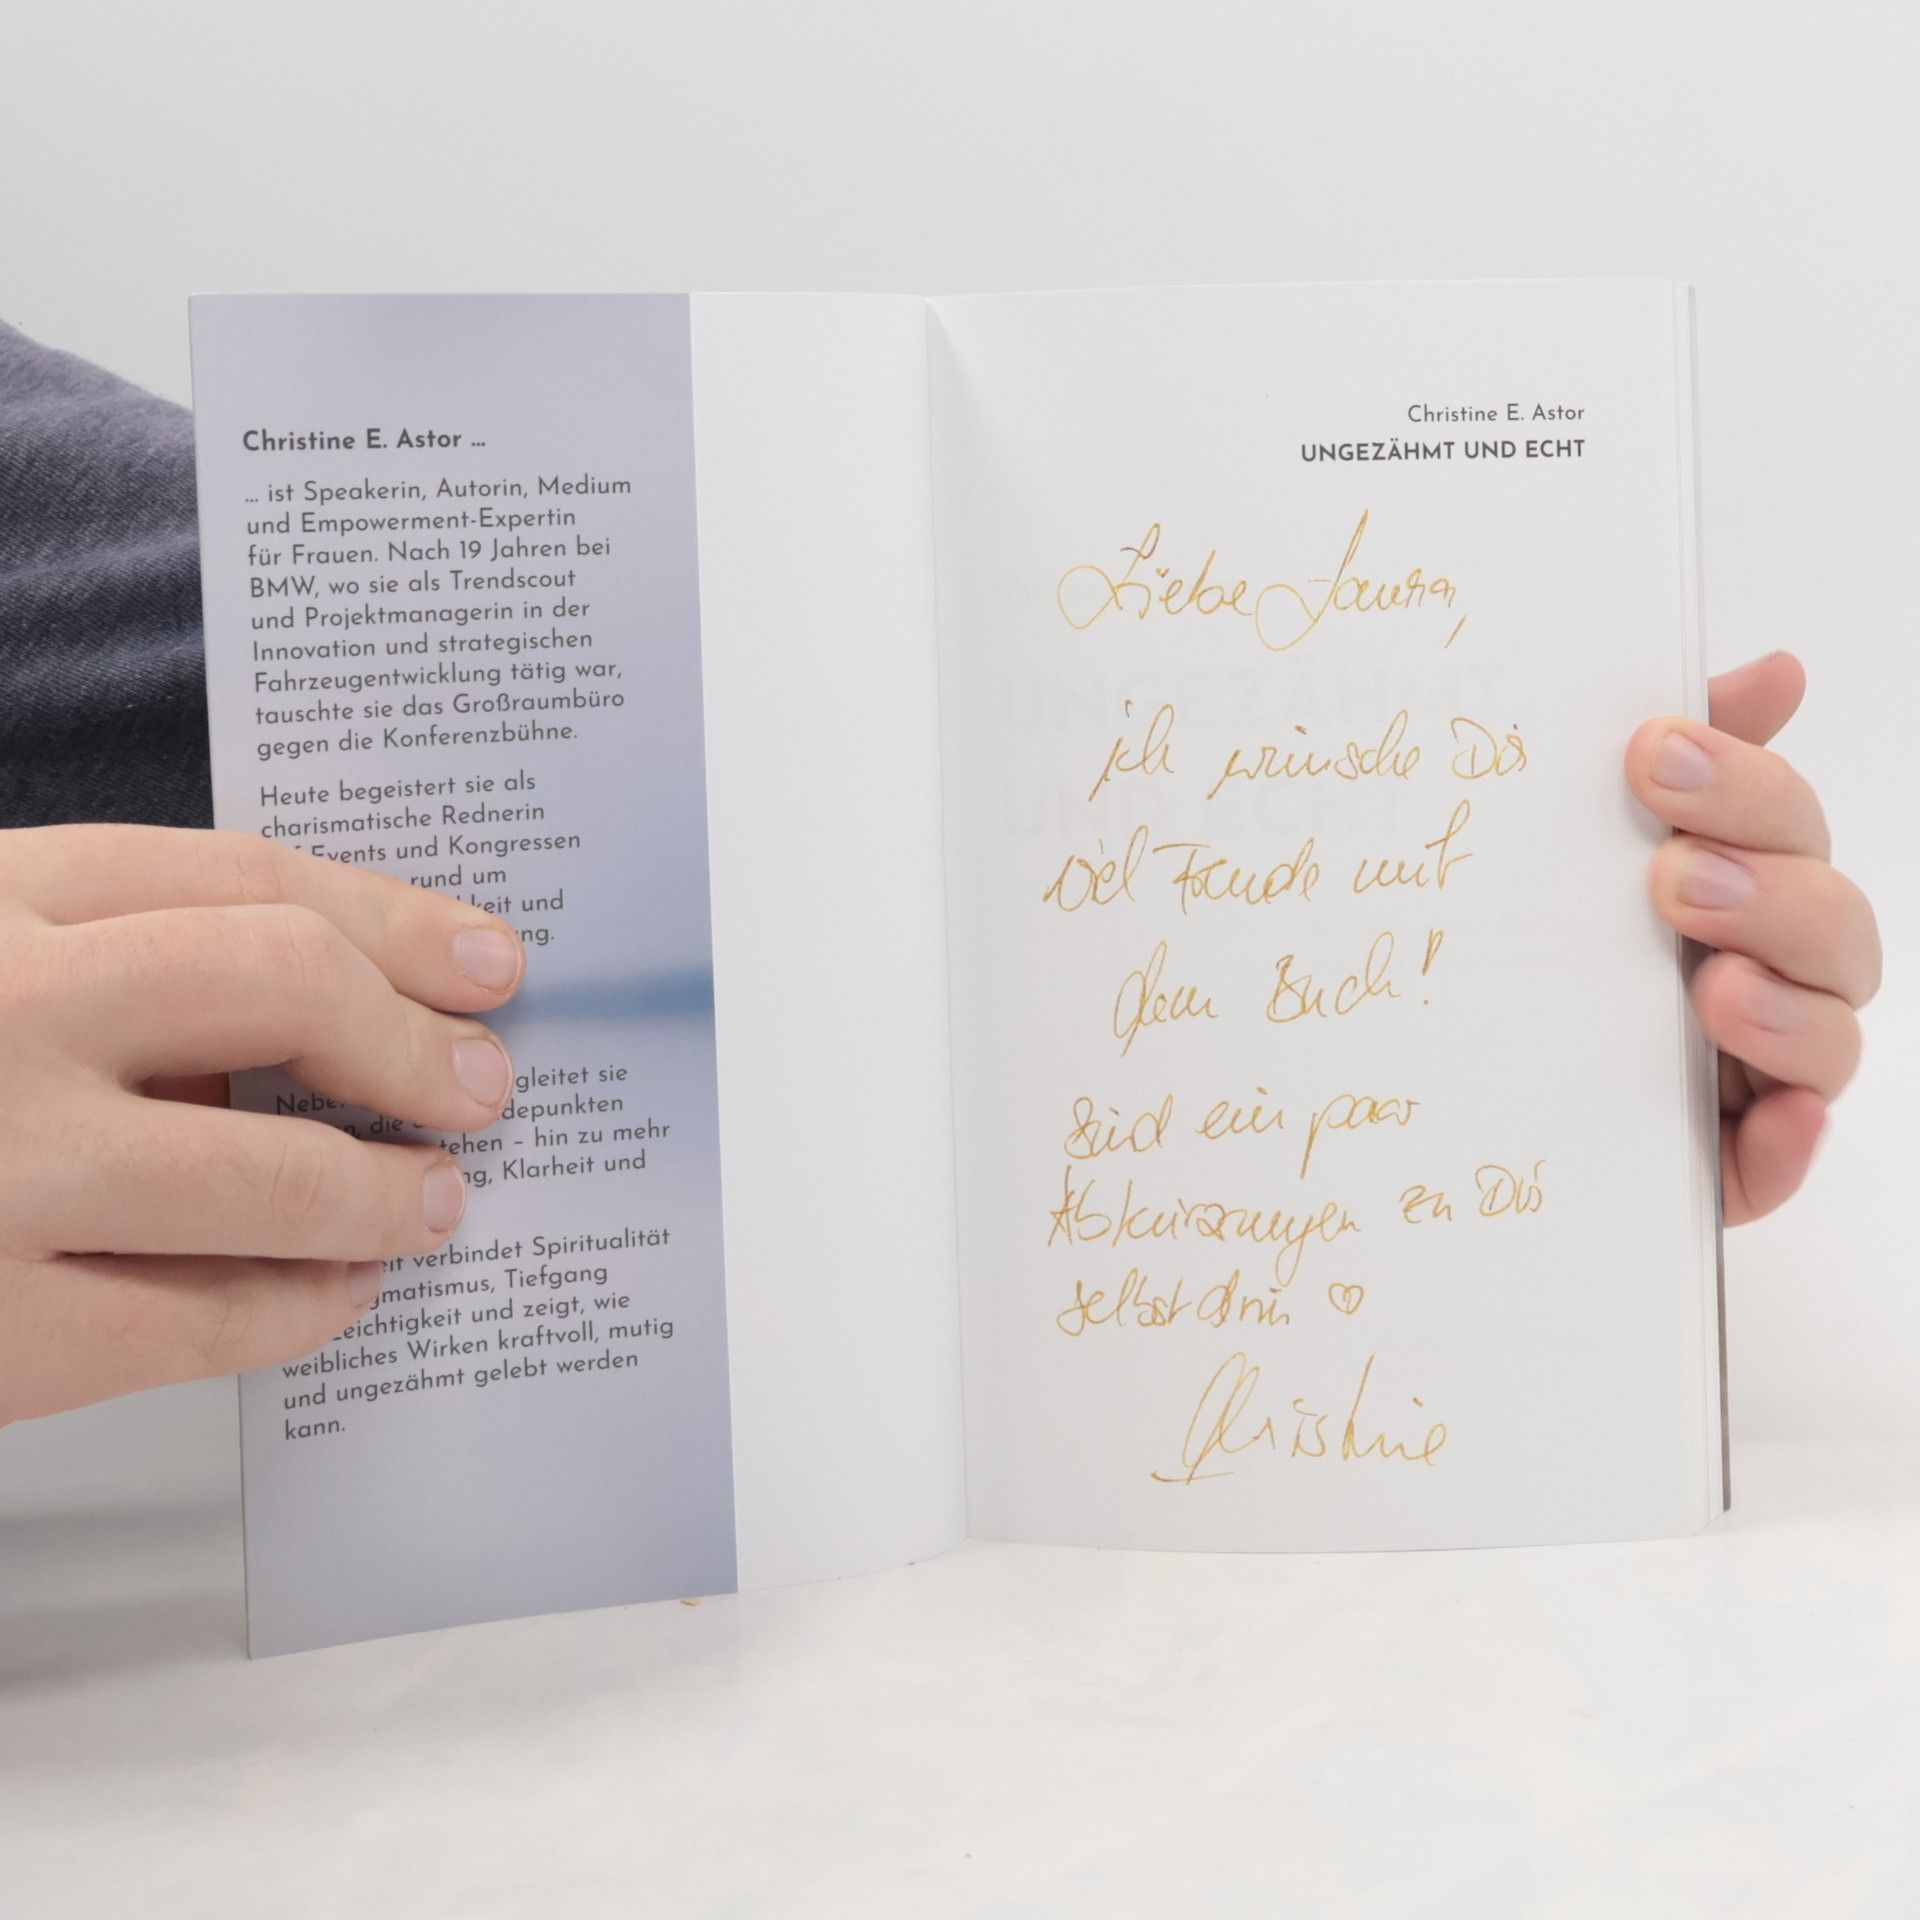 Christine E. Astor ...
... ist Speakerin, Autorin, Medium
und Empowerment-Expertin
für Frauen. Nach 19 Jahren bei
BMW, wo sie als Trendscout
und Projektmanagerin in der
Innovation und strategischen
Fahrzeugentwicklung tätig war,
tauschte sie das Großraumbüro
gegen die Konferenzbühne.
Heute begeistert sie als
charismatische Rednerin
Events und Kongressen
rund um
keit und
ng.
gleitet sie
depunkten
die
tehen – hin zu mehr
ng, Klarheit und
verbindet Spiritualität
gmatismus, Tiefgang
eichtigkeit und zeigt, wie
weibliches Wirken kraftvoll, mutig
und ungezähmt gelebt werden
kann.
Christine E. Astor
UNGEZÄHMT UND ECHT
Liebe Laura,
ich wünsche Dir
viel Freude mit
dem Buch!
Sind ein paar
Abkürzungen zu Dir
selbst drin ♡
Christine